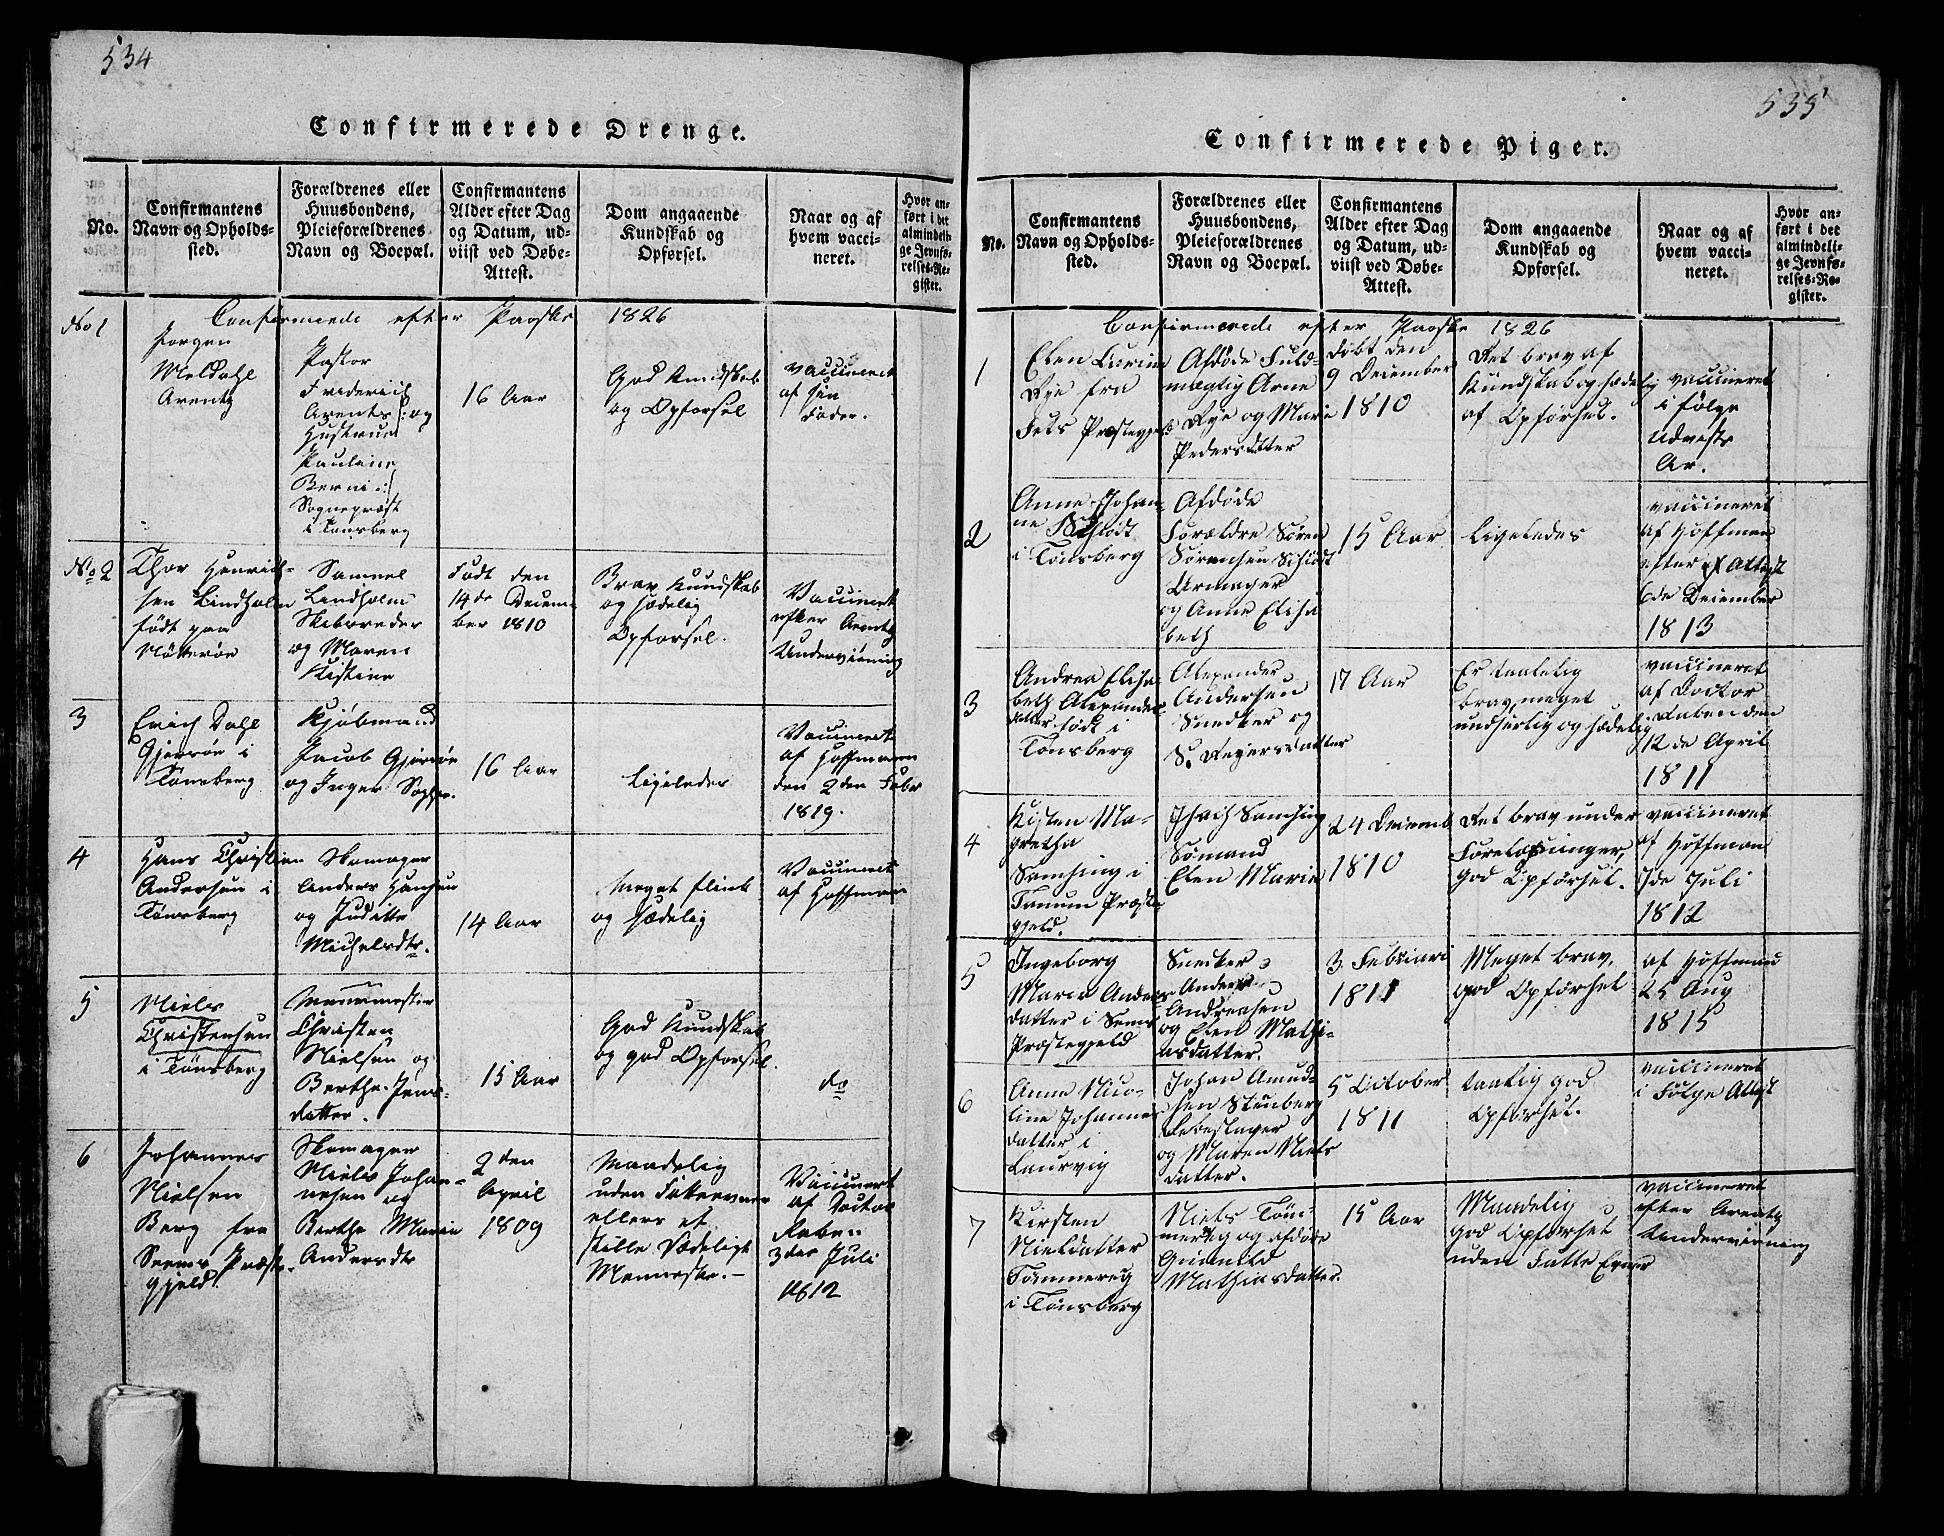 534
Confirmerede Drenge.
No.
Confirmantens
Navn og Opholds-
sted.
Forældrenes eller
Huusbondens,
Pleieforældrenes
Navn og Boepæl.
Confirmantens
Alder efter Dag
og Datum, ud-
viist ved Døbe-
Attest.
Dom angaaende
Kundskab og
Opførsel.
Naar og af
hvem vacci-
neret.
Hvor an-
ført i det
almindeli-
ge Jevnfø-
relses-Re-
gister.
Confirmerede efter Paaske 1826
No 1
Jørgen
Meldahl
Arentz
Pastor
Friderich
Arents /: og
Hustrue
Pauline
Berni :/
Sognepræst
i Tønsberg
16 Aar
God Kundskab
og Opførsel
vaccineret
af sin
Fader.
No 2
Thor Henrich-
sen Lindholm
født paa
Nøtterøe
Samuel
Lindholm
Skibsreder
og Maren
Kistine
Født den
14de Decem-
ber 1810
Brav Kundskab
og sædelig
Opførsel.
Vaccineret
efter Arentz
Underviisning
3
Erich Dahl
Gjersøe i
Tønsberg
Kjøbmand
Jacob Gjersøe
og Inger Sophie.
16 Aar
Ligeledes
Vaccineret
af Hoffmann
den 2den Febr
1819.
4
Hans Christian
Andersen i
Tønsberg
Skomager
Anders Hansen
og Juditte
Michelsdtr.
14 Aar
Meget flink
og sædelig
Vaccineret
af Hoffmann
5
Niels
Christensen
i Tønsberg
Muurmester
Christen
Nielsen og
Berthe Jens-
datter.
15 Aar
God Kundskab
og god Opførsel.
do
6
Johannes
Nielsen
Berg fra
Seems Præste-
gjeld.
Skomager
Niels Johan-
nesen og
Berthe Marie
Andersdtr
2den
April
1809
Maadelig
uden
ellers et
stille Sædeligt
Menneske.-
Vaccineret
af Doctor
Raben
3die Juli
1812
535
Confirmerede Piger.
No.
Confirmantens
Navn og Opholds-
sted.
Forældrenes eller
Huusbondens,
Pleieforældrenes
Navn og Boepæl.
Confirmantens
Alder efter Dag
og Datum, ud-
viist ved Døbe-
Attest.
Dom angaaende
Kundskab og
Opførsel.
Naar og af
hvem vacci-
neret.
Hvor an-
ført i det
almindeli-
ge Jevnfø-
relses-Re-
gister.
Confirmerede efter Paaske 1826
1
Elen Lurine
Rye fra
Fets Præstegjeld
Afdøde Fuld-
mægtig Arne
Rye og Marie
Pedersdatter
døbt den
9 December
1810
Ret brav af
Kundskab og sædelig
af Opførsel.
vaccineret
i følge
udviste
Ar.
2
Anne Johan-
ne Schiødt
i Tønsberg
Afdøde
Forældre Søren
Sørensen Schiødt
Urmager
og Anne Elisa
beth
15 Aar
Ligeledes
vaccineret
af Hoffman
efter Attest
6de December
1813
3
Andrea Elisa-
beth Alexander
datter født i
Tønsberg
Alexander
Andersen
Snedker og
S. Regersdatter
17 Aar
Er taalelig
brav, meget
undseelig og sædelig
vaccineret
af Doctor
Raben den
12de April
1811
4
Kisten Ma-
gretha
Samsing i
Tanum Præste
gjeld.
Isach Samsing
Sømand
Elen Marie
24 Decemb
1810
Ret brav under
Forelæsninger,
god Opførsel.
vaccineret
af Hoffman
7de Juli
1812
5
Ingeborg
Marie Anders
datter i Sems
Præstegjeld
Snecker
Anders
Andreasen
og Elen Mathi-
asdatter.
3 Februari
1811
Meget brav,
god Opførsel
af Hoffman
25 Aug
1815
6
Anne Nico-
line Johannes
datter i
Laurvig
Johan Amund-
sen Stenberg
Rebeslager
og Maren Niels
datter.
5 October
1811
taalig god
Opførsel.
vaccineret
i Følge Attest
7
Kirsten
Nielsdatter
Tømmereg
i Tønsberg
Niels Tøm-
mereg og afdøde
Gunnild
Mathiasdatter.
15 Aar
Maadelig
god Opførsel
uden Fatte Evner
vaccineret
efter Arentz
Underviisning